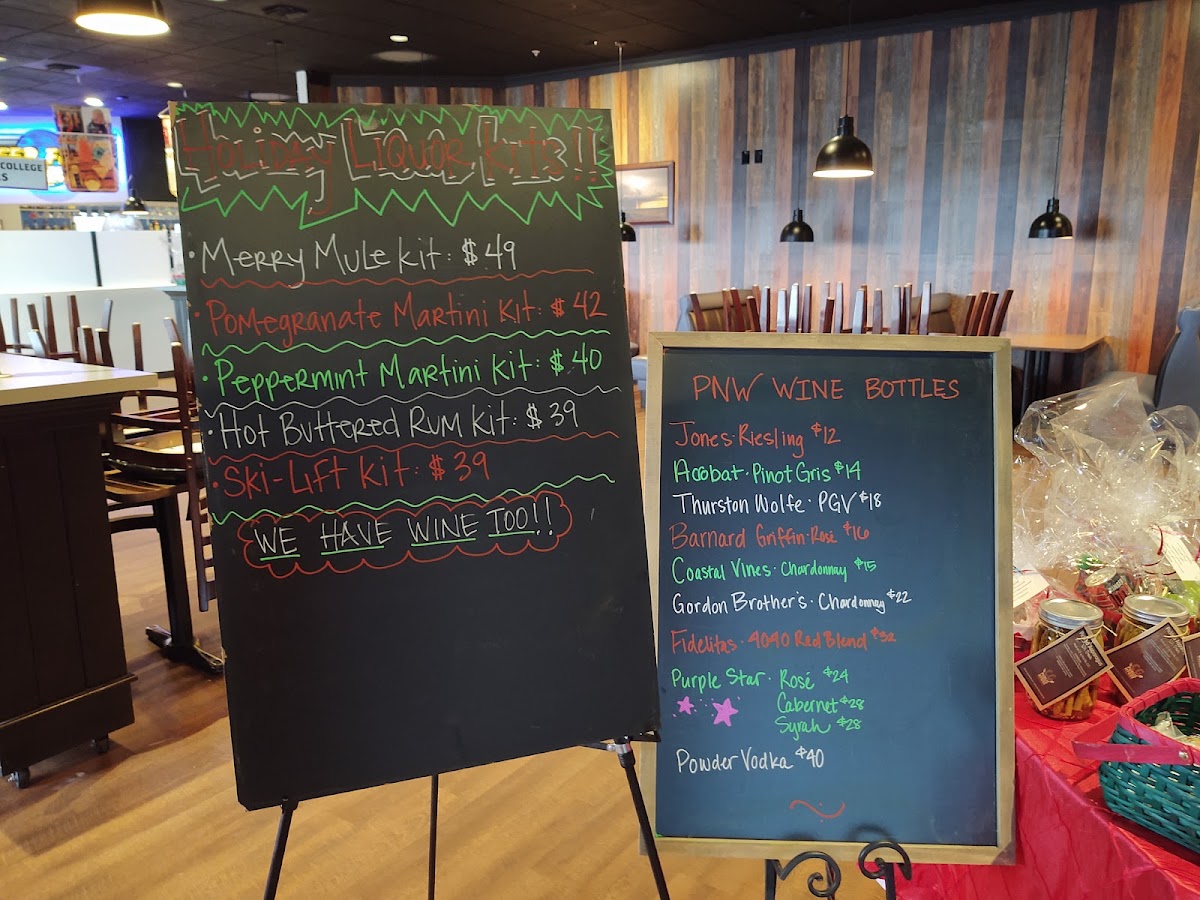 COLLEGE
Holiday Liquor Kits!!
• Merry Mule kit: $49
• Pomegranate Martini Kit: $42
• Peppermint Martini kit: $40
• Hot Buttered Rum kit: $39
• Ski-Lift kit: $39
WE HAVE WINE TOO!!
PNW WINE BOTTLES
Jones · Riesling $12
Acrobat · Pinot Gris $14
Thurston Wolfe · PGV $18
Barnard Griffin · Rosé $16
Coastal Vines · Chardonnay $15
Gordon Brother's · Chardonnay $22
Fidelitas · 4040 Red Blend $32
Purple Star · Rosé $24
Cabernet $28
Syrah $28
Powder Vodka $40